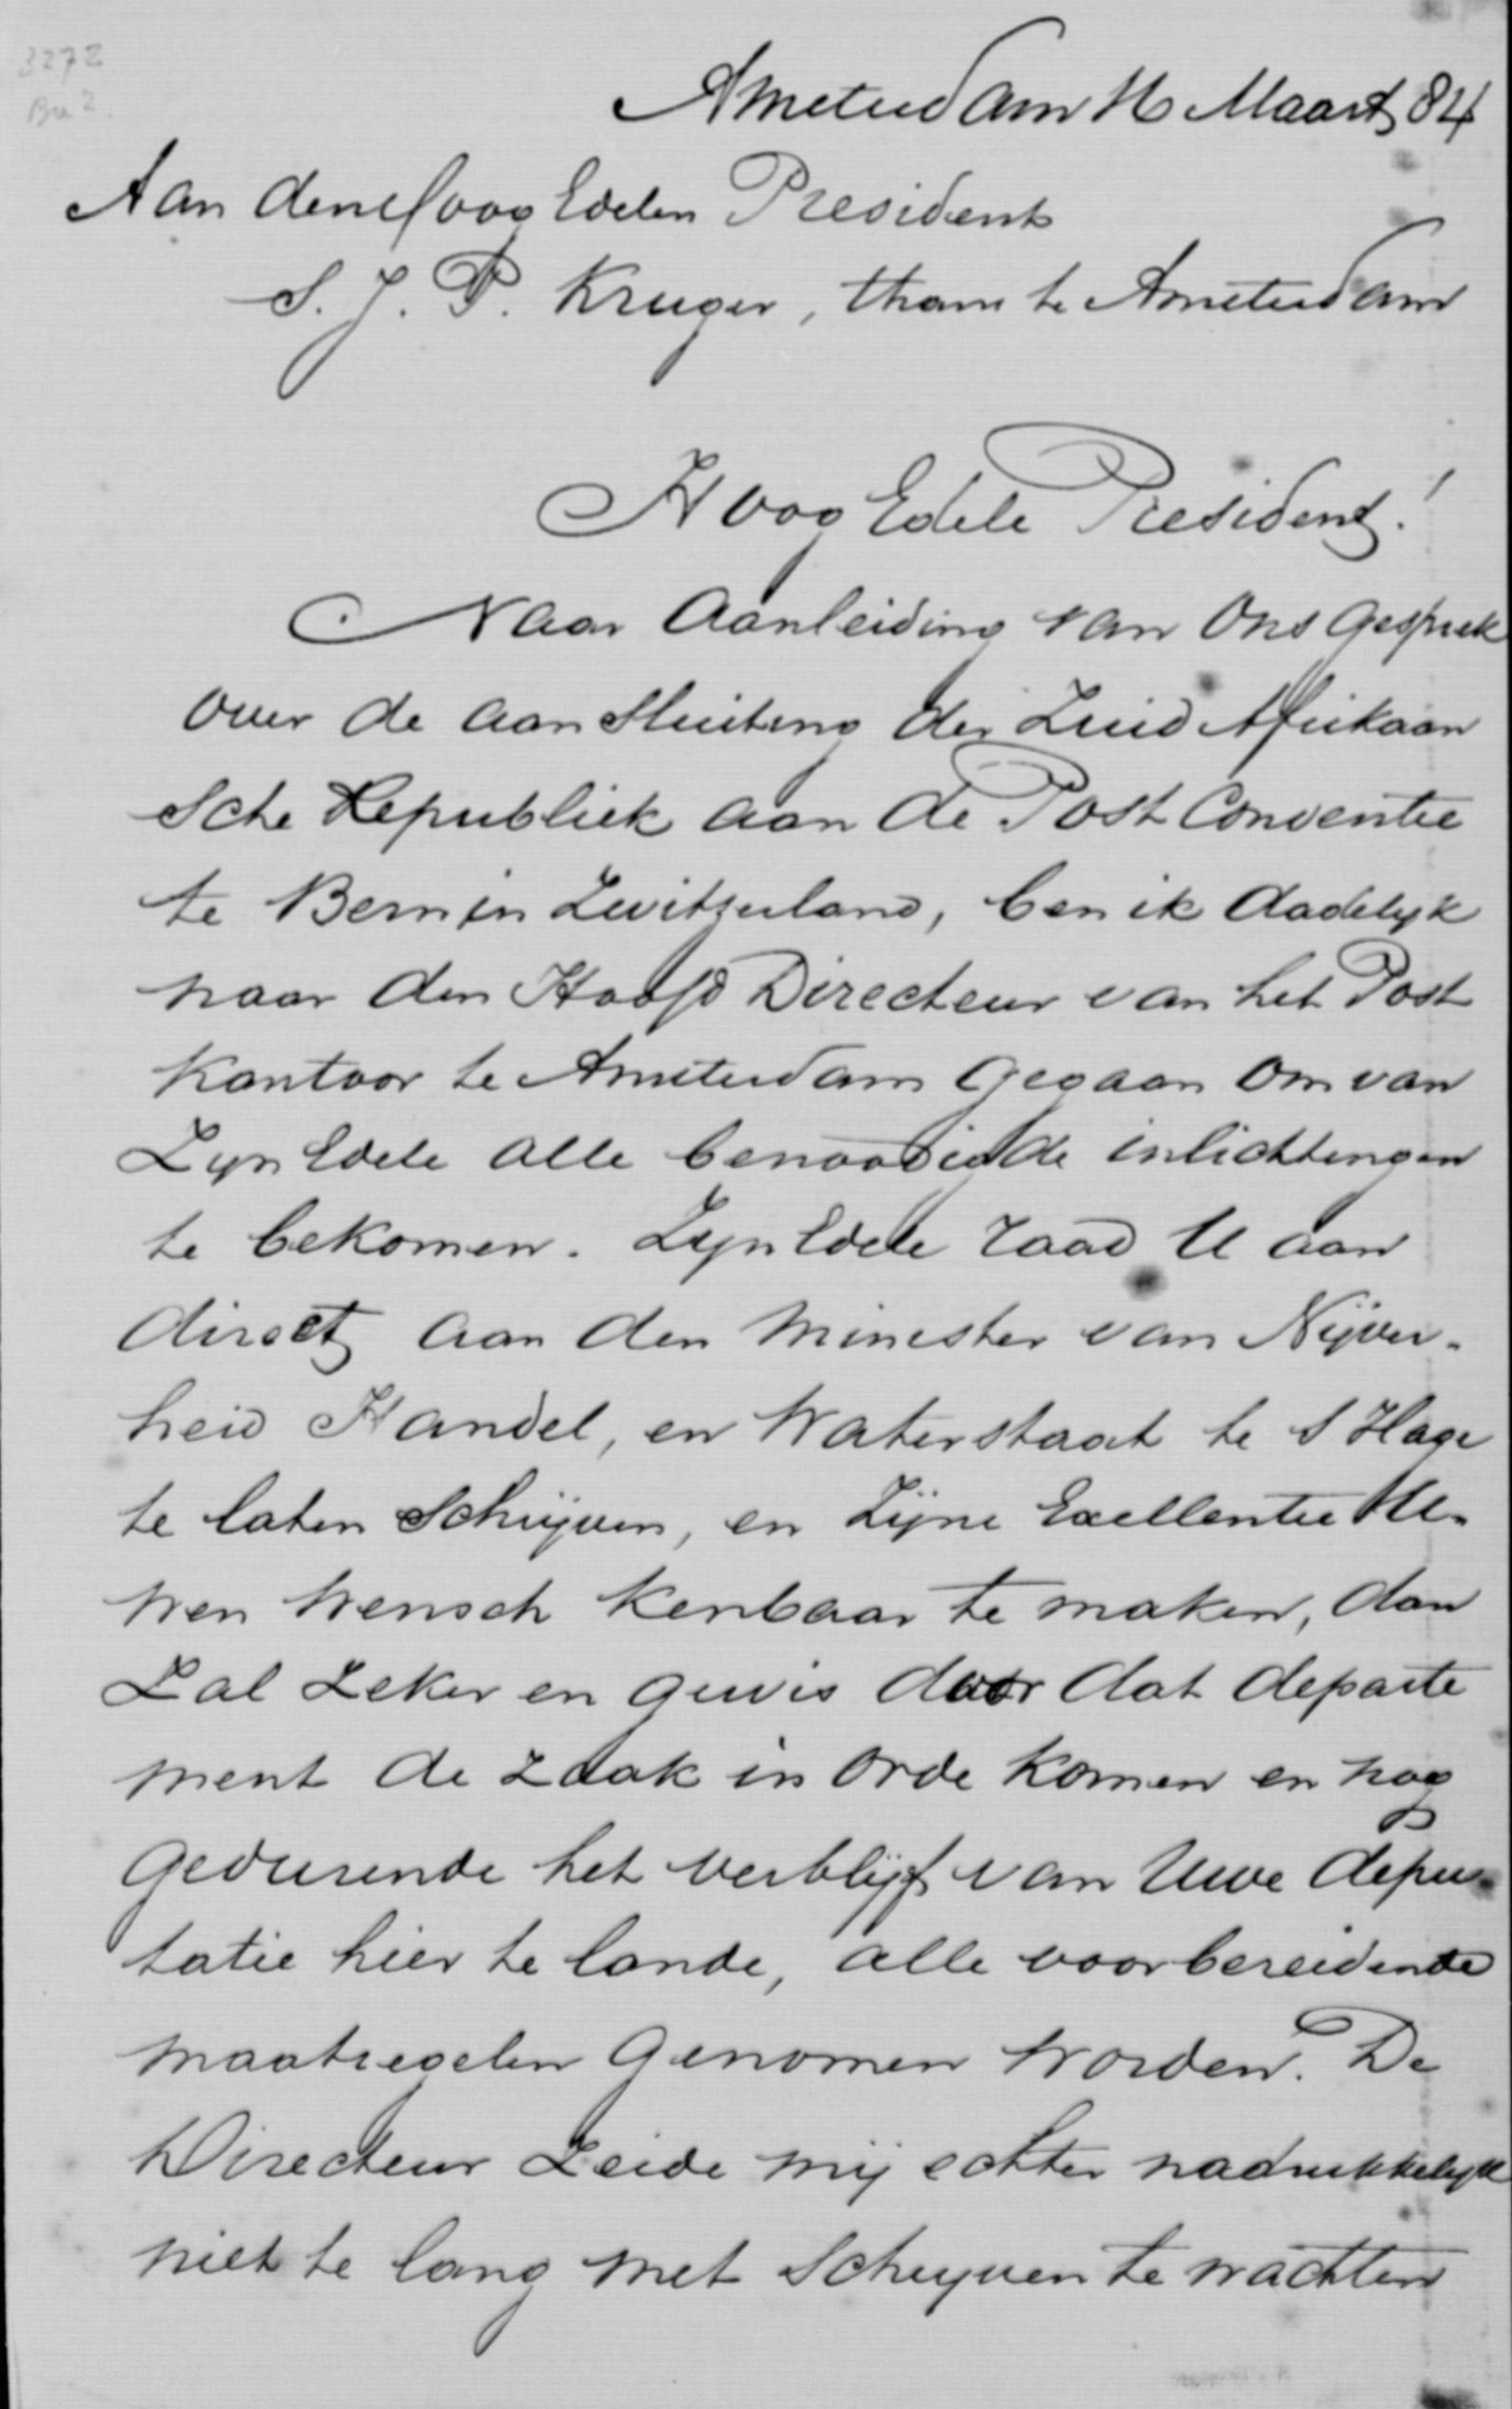 3272
Bu 2
Amsterdam 16 Maart 84
Aan den Hoog Edelen President
S. J. P. Kruger, thans te Amsterdam
Hoog Edele President!
Naar Aanleiding van Ons Gesprek
over de aansluiting der Zuid Afrikaan
sche Republiek aan de Post Conventie
te Bern in Zwitserland, ben ik dadelyk
naar den Hoofd Directeur van het Post
kantoor te Amsterdam Gegaan Om van
Zyn Edele alle benoodigde inlichtingen
te bekomen. Zyn Edele raad U aan
direct aan den Minister van Nijver-
heid Handel, en Waterstaat te S Hage
te laten Schrijven, en Zijne Exellentie U-
wen wensch kenbaar te maken, dan
Zal Zeker en gewis door dat departe
ment de zaak in Orde komen en nog
Gedurende het verblijf van Uwe depu-
tatie hier te lande, alle voorbereidende
maatregelen Genomen worden. De
Directeur Zeide mij echter nadrukkelyk
niet te lang met Schryven te wachten